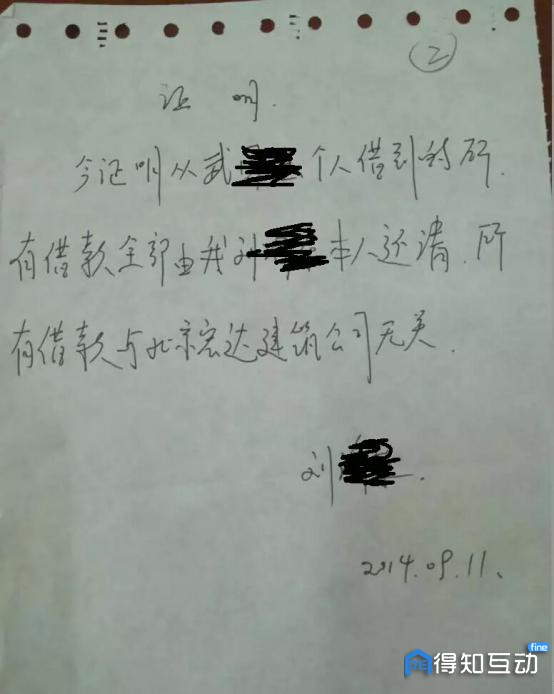 ②
证 明.
今证明从武 个人借到的所
有借款全部由我刘 本人还清.所
有借款与北京宏达建筑公司无关.
刘 .
2014.09.11、
得知互动
fine